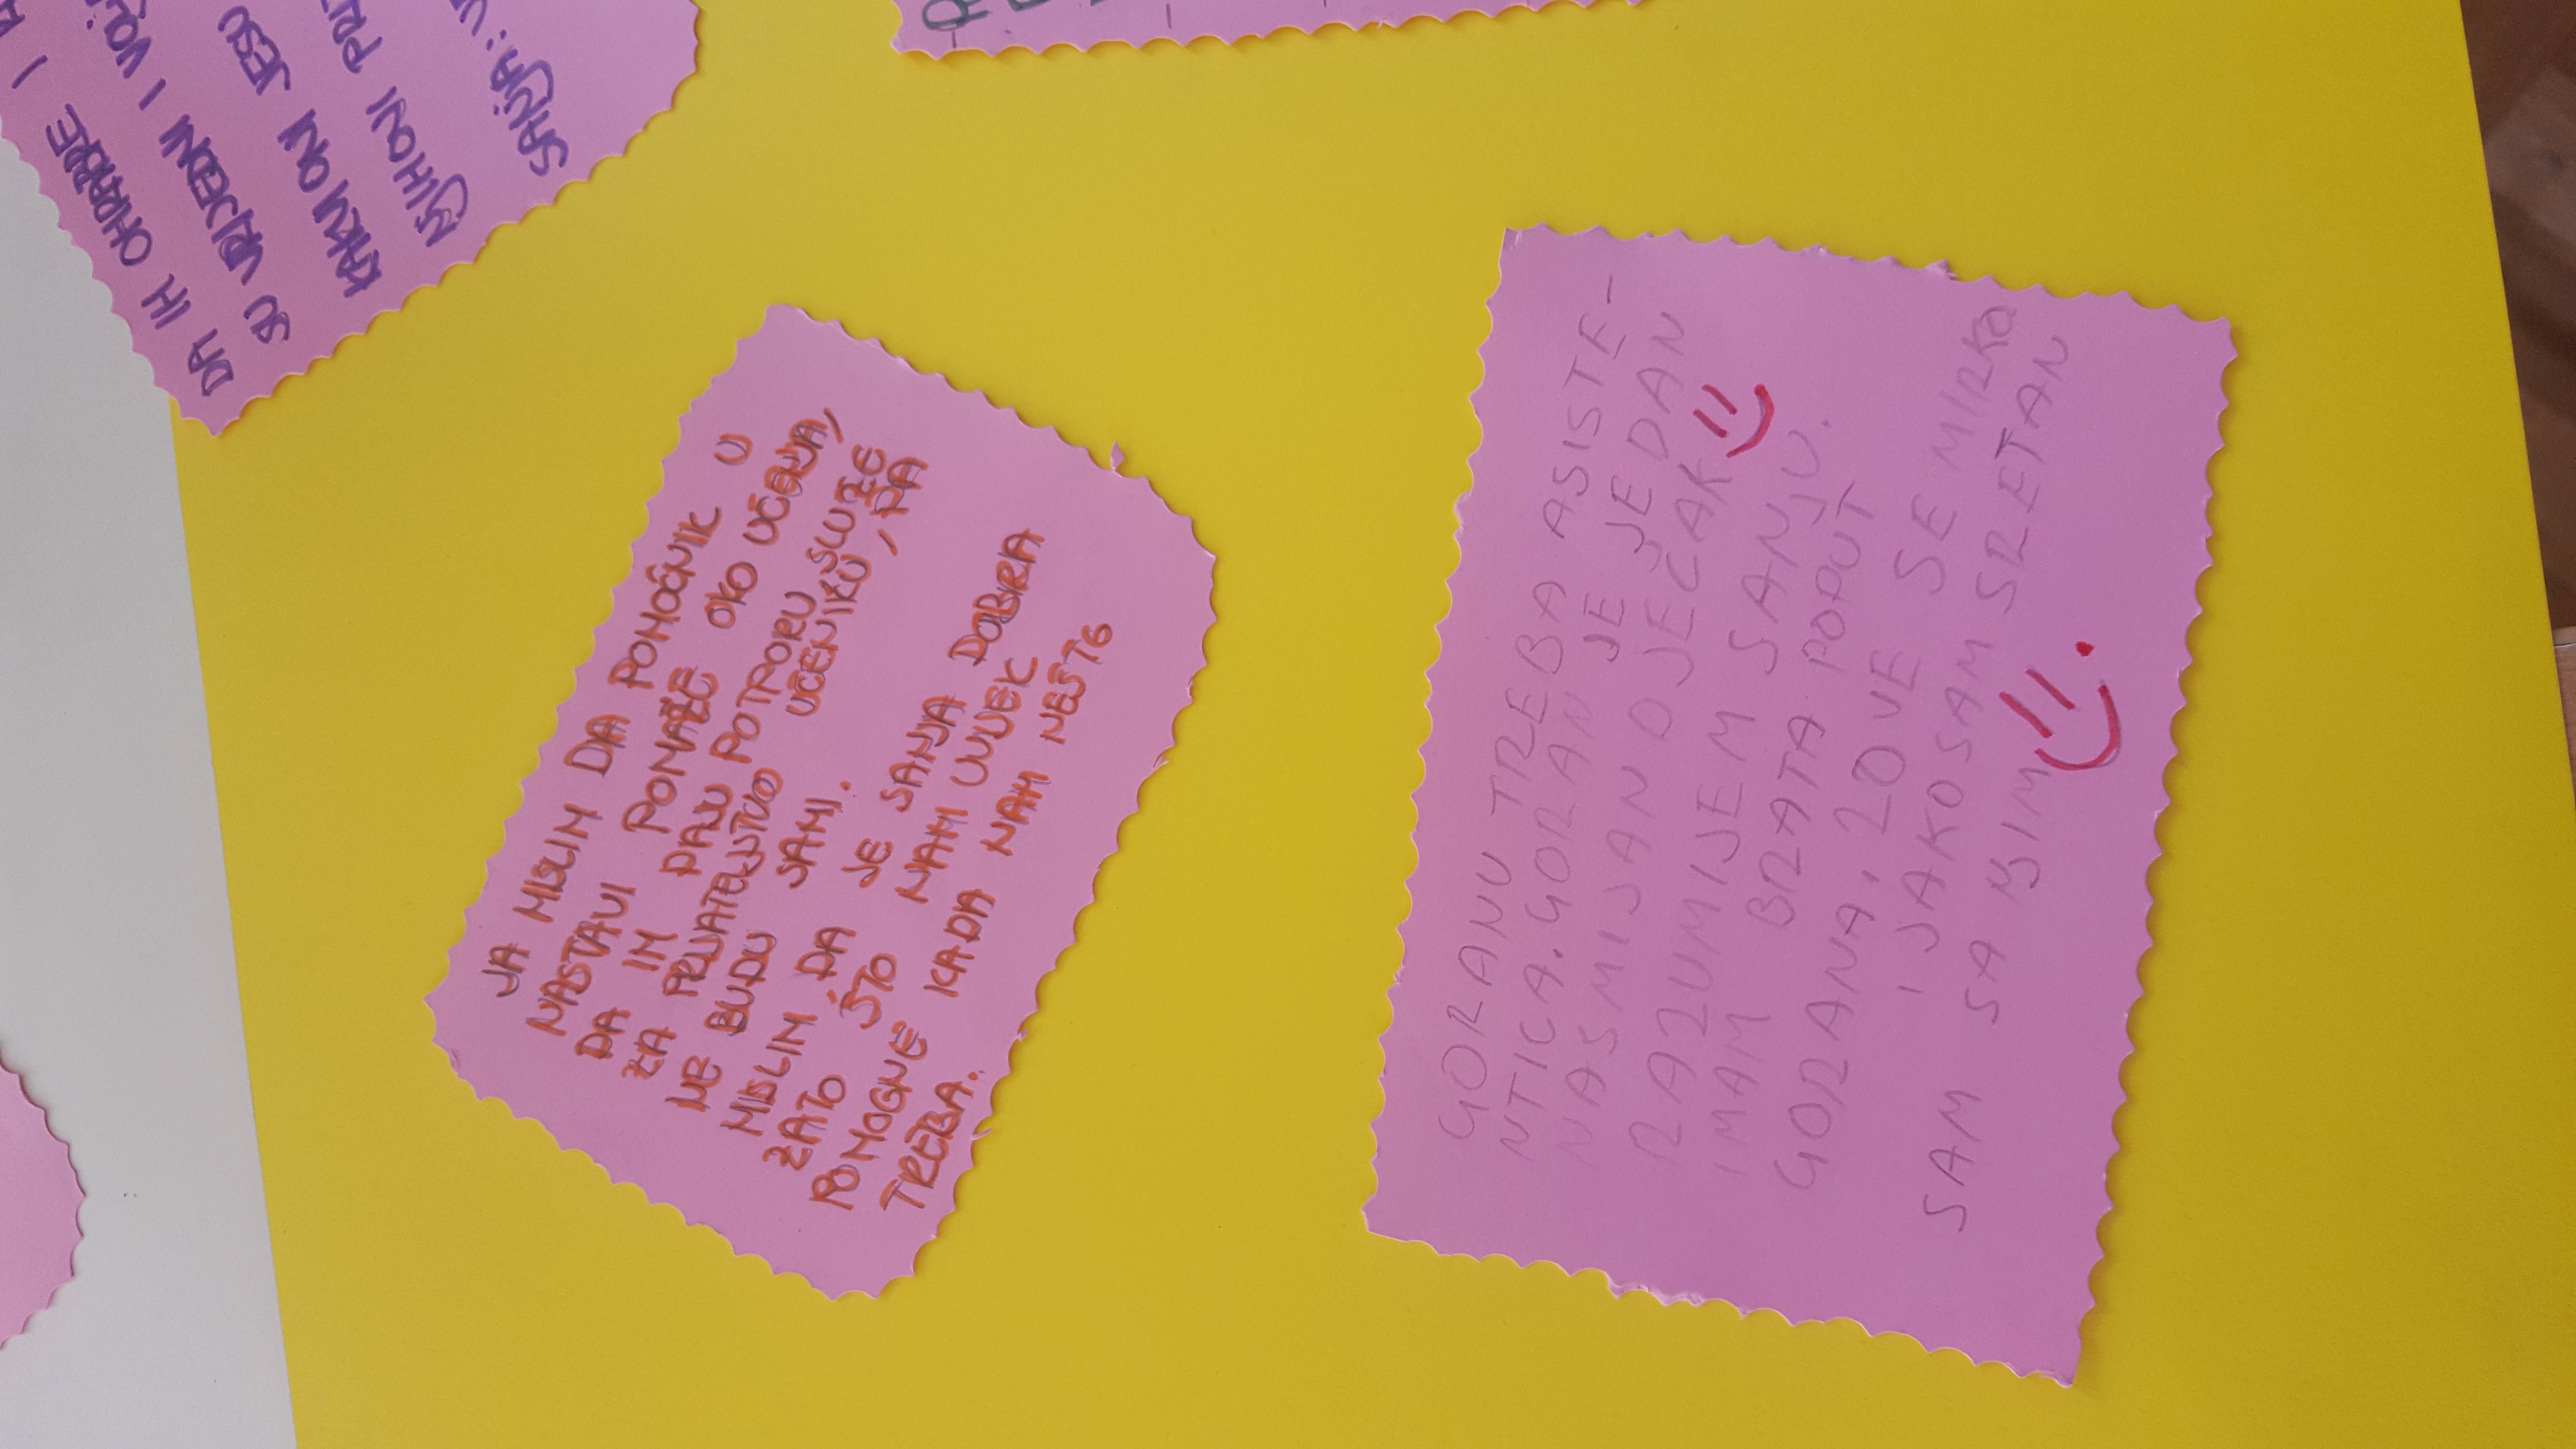 DA IH OHRABRE I
SU VRIJEDNI I
KAKVI ONI JESU
NJIHOVI
SANJA:
JA MISLIM DA POMOĆNIK U
NASTAVI POMAŽE OKO UČENJA,
DA IM DAJU POTPORU SLUŽE
ZA PRIJATELJSTVO UČENIKU, PA
NE BUDU SAMI.
MISLIM DA JE SANJA DOBRA
ZATO ŠTO NAM UVIJEK
POMOGNE KADA NAM NEŠTO
TREBA.
GORANU TREBA ASISTE-
NTICA. GORAN JE JEDAN
NASMIJAN DJEČAK
RAZUMIJEM SANJU.
IMAM BRATA POPUT
GORANA, ZOVE SE MIRKO
I JAKO SAM SRETAN
SAM SA NJIM